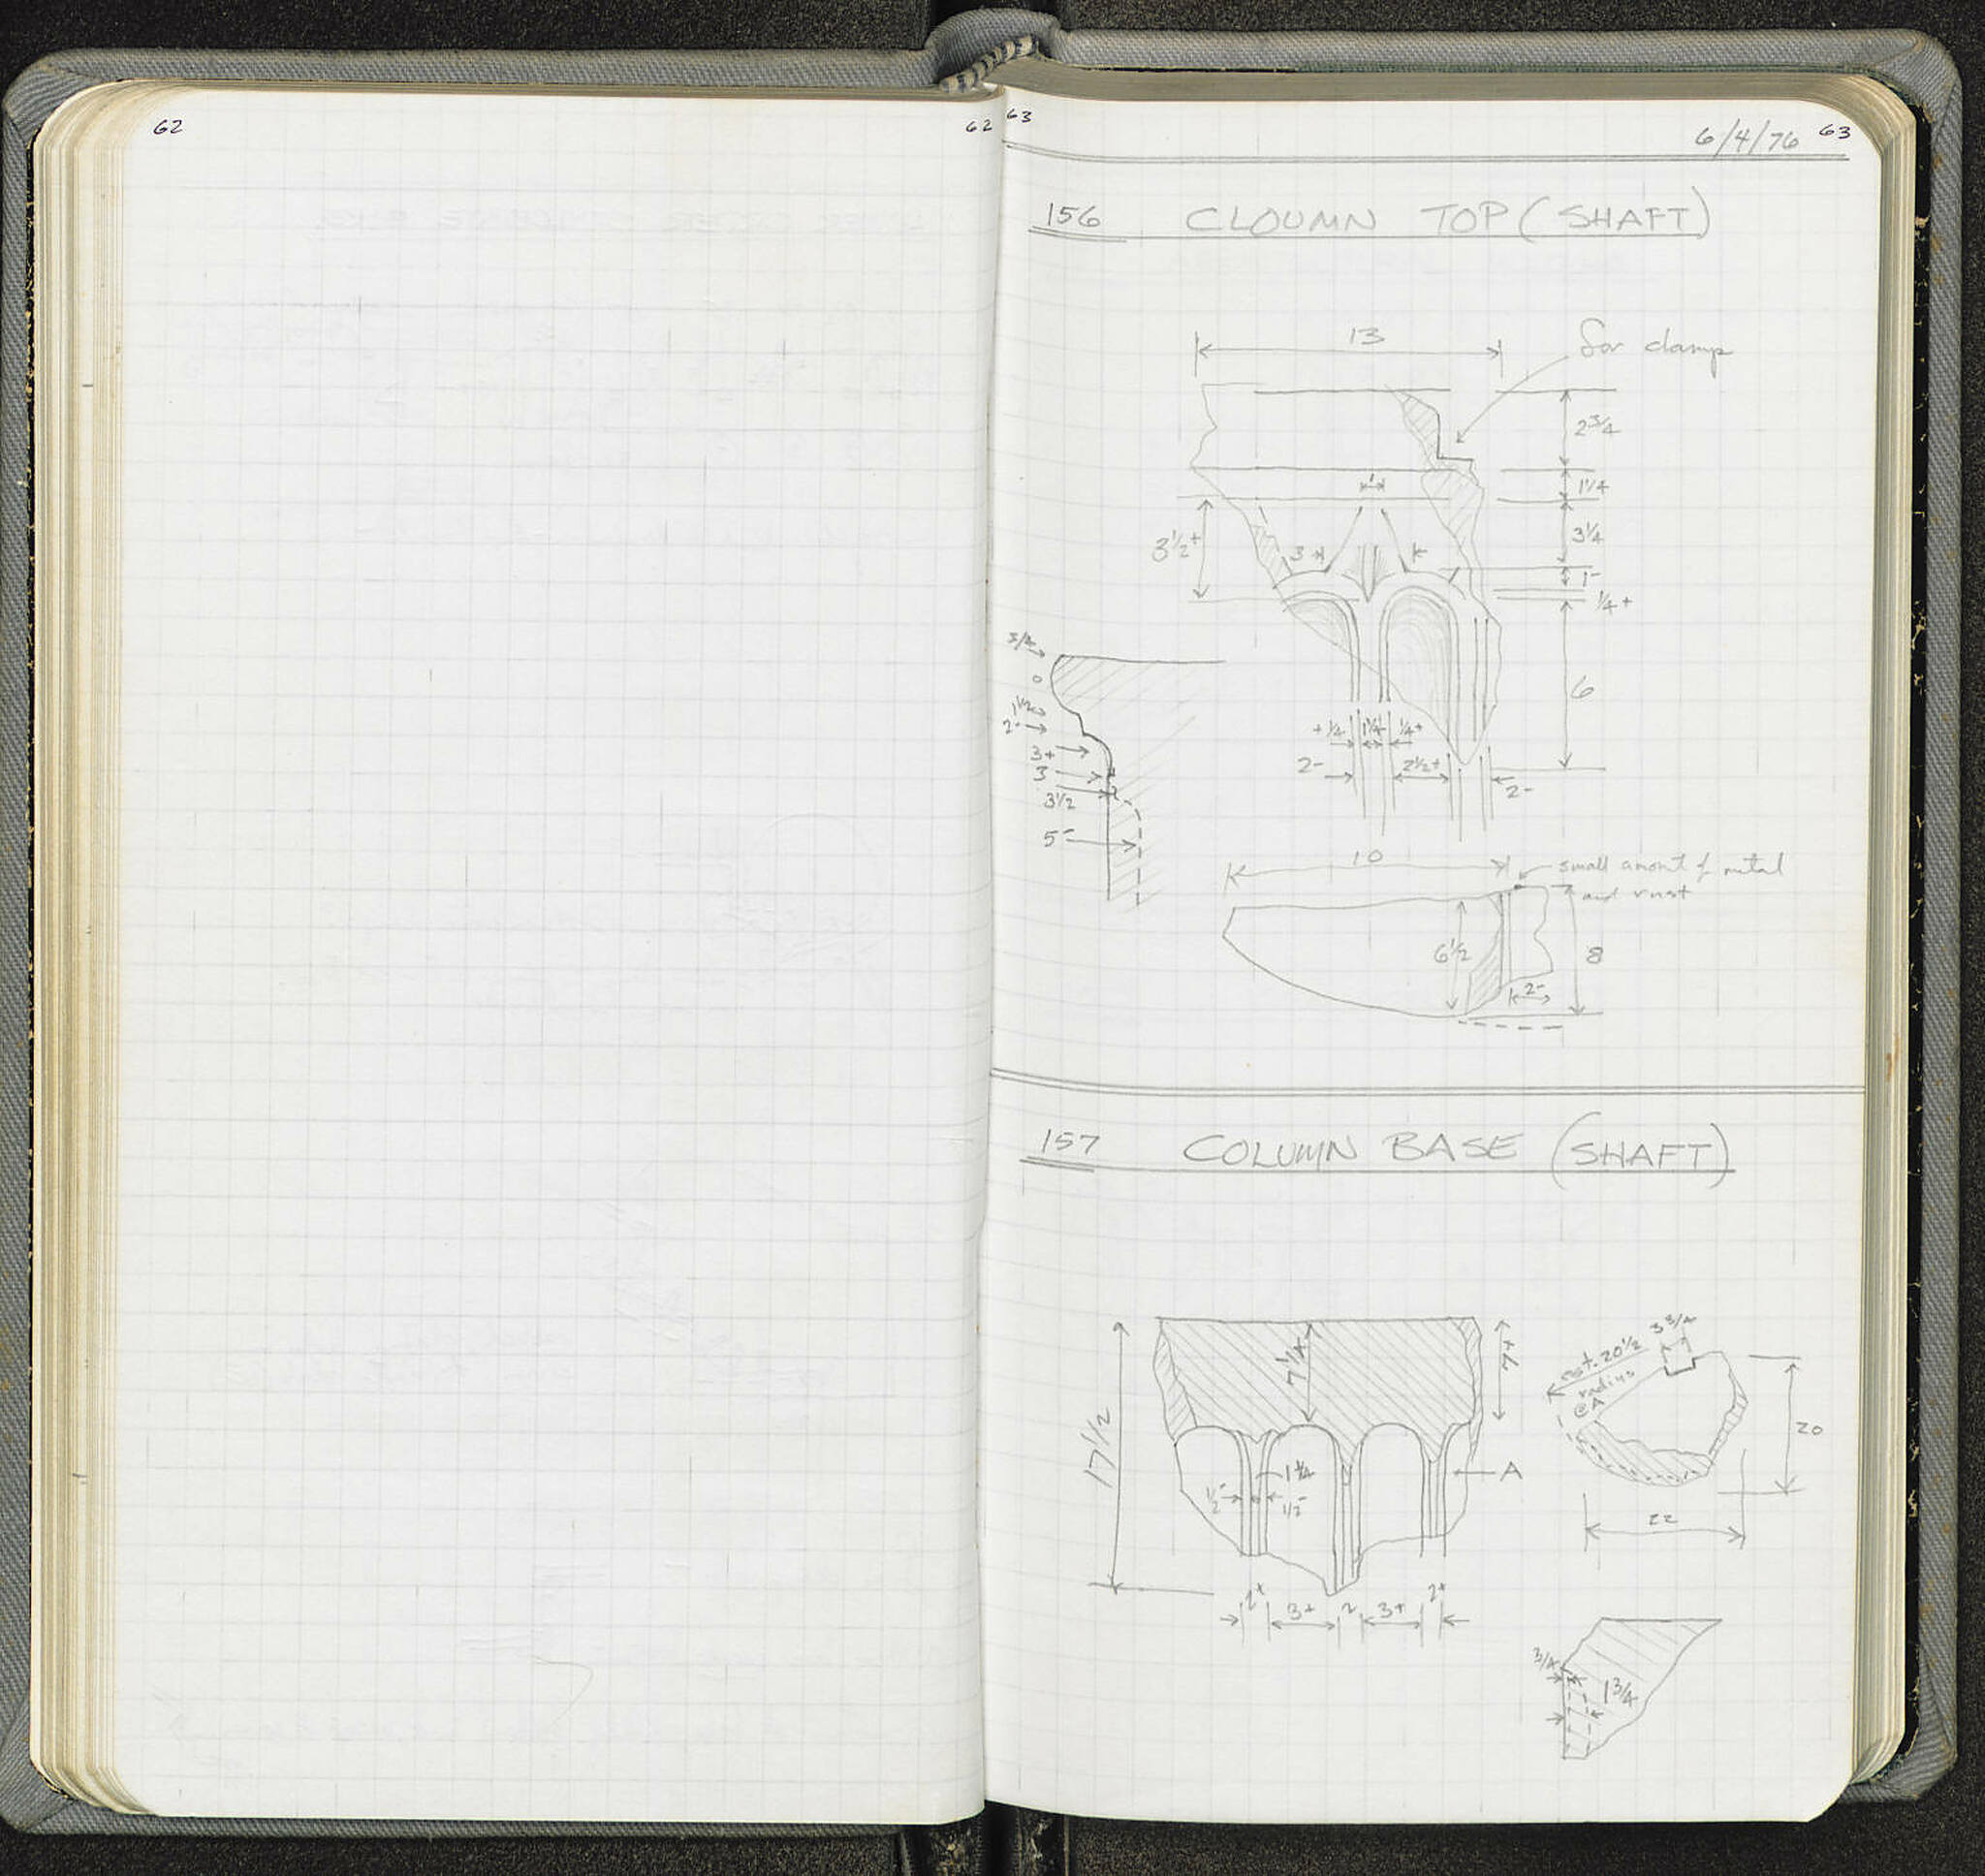 62
62
63
6/4/76 63
156 CLOUMN TOP (SHAFT)
13
for clamp
2 3/4
1
1 1/4
3 1/2+
3 1/4
3
1-
1/4+
6
0
1 1/2
2-
3+
3
3 1/2
5-
+1/4 1 1/4 1/4+
2- 2 1/2+
2-
10
small amont of metal
and rust
6 1/2
8
2-
157 COLUMN BASE (SHAFT)
17 1/2
7 1/4
7+
1 1/4
1/2-
1/2-
A
2+ 3+ 2 3+ 2+
3 3/4
est. 20 1/2
radius
@A
20
22
3/4
1 3/4